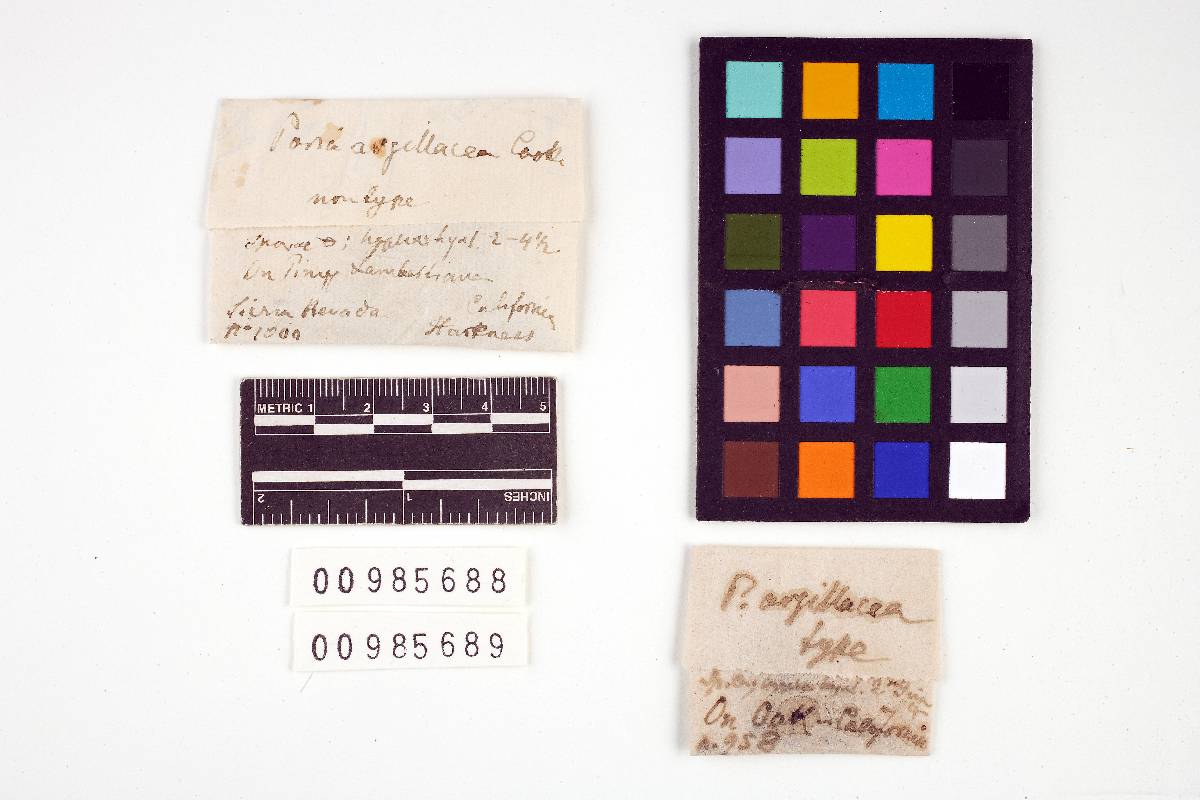 Poria argillacea Cooke
non type
spore ; hyphae hyal. 2-4½
On Pinus Lambertiana
Sierra Nevada California
No 1000 Harkness
METRIC 1 2 3 4 5
2 1 INCHES
00985688
00985689
P. argillacea
type
On Oak - California
n. 958